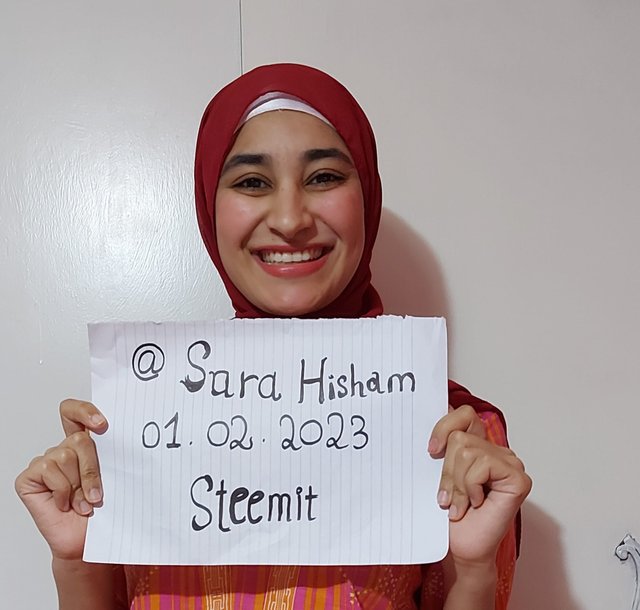 @ Sara Hisham
01.02.2023
Steemit